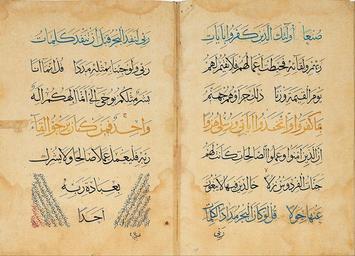 صنعا أولئك الذين كفروا بآيات
ربهم ولقائه فحبطت أعمالهم فلا نقيم لهم
يوم القيمة وزنا ذلك جزاؤهم جهنم
بما كفروا واتخذوا آياتي ورسلي هزوا
إن الذين آمنوا وعملوا الصالحات كانت لهم
جنات الفردوس نزلا خالدين فيها لا يبغون
عنها حولا قل لو كان البحر مدادا لكلمات
ربي
ربي لنفد البحر قبل أن تنفد كلمات
ربي ولو جئنا بمثله مددا قل إنما أنا
بشر مثلكم يوحى إلي أنما إلهكم إله
واحد فمن كان يرجو لقاء
ربه فليعمل عملا صالحا ولا يشرك
بعبادة ربه
أحدا